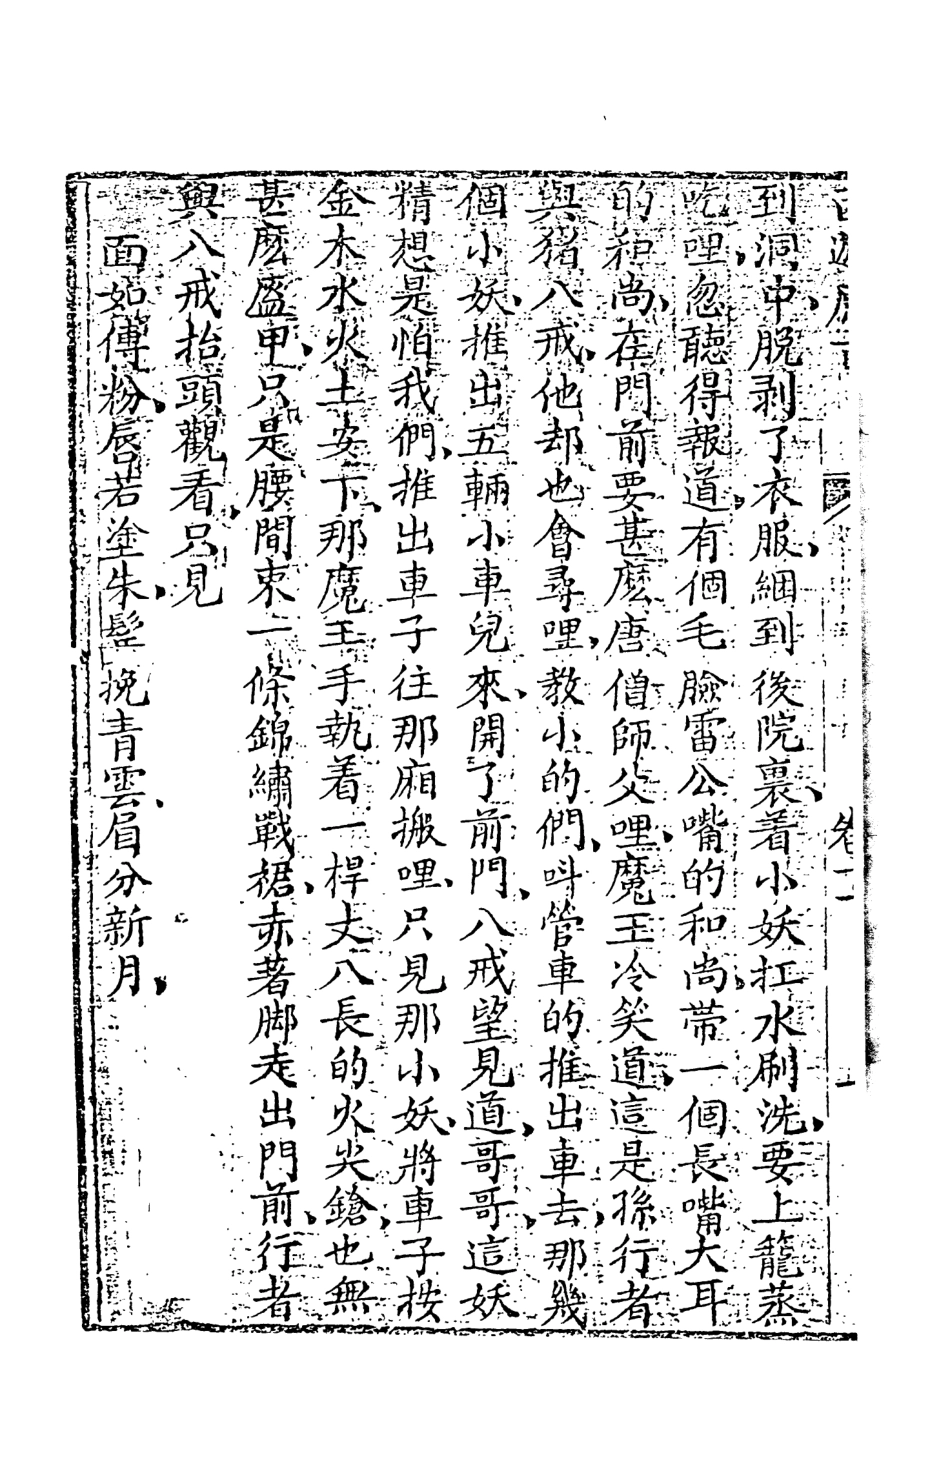 到洞中脫剥了衣服綑到後院裏着小妖扛水刷洗要上籠蒸
吃哩忽聽得報道有個毛臉雷公嘴的和尚帶一個長嘴大耳
的和尚在門前要甚麽唐僧師父哩魔王冷笑道這是孫行者
與猪八戒他却也會尋哩教小的們叫管車的推出車去那幾
個小妖推出五輛小車兒來開了前門八戒望見道哥哥這妖
精想是怕我們推出車子往那廂搬哩只見那小妖將車子按
金木水火土安下那魔王手執着一桿丈八長的火尖鎗也無
甚麽盔甲只是腰間束一條錦繡戰裙赤著脚走出門前行者
與八戒抬頭觀看只見
面如傅粉唇若塗朱髩挽青雲眉分新月